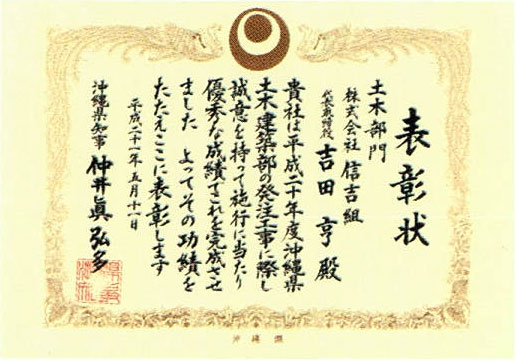 表彰状
土木部門
株式会社 信吉組
代表取締役 吉田 亨 殿
貴社は平成二十年度沖縄県
土木建築部の発注工事に際し
誠意を持って施行に当たり
優秀な成績でこれを完成させ
ました よってその功績を
たたえここに表彰します
平成二十一年五月十一日
沖縄県知事 仲井眞 弘多
沖縄県